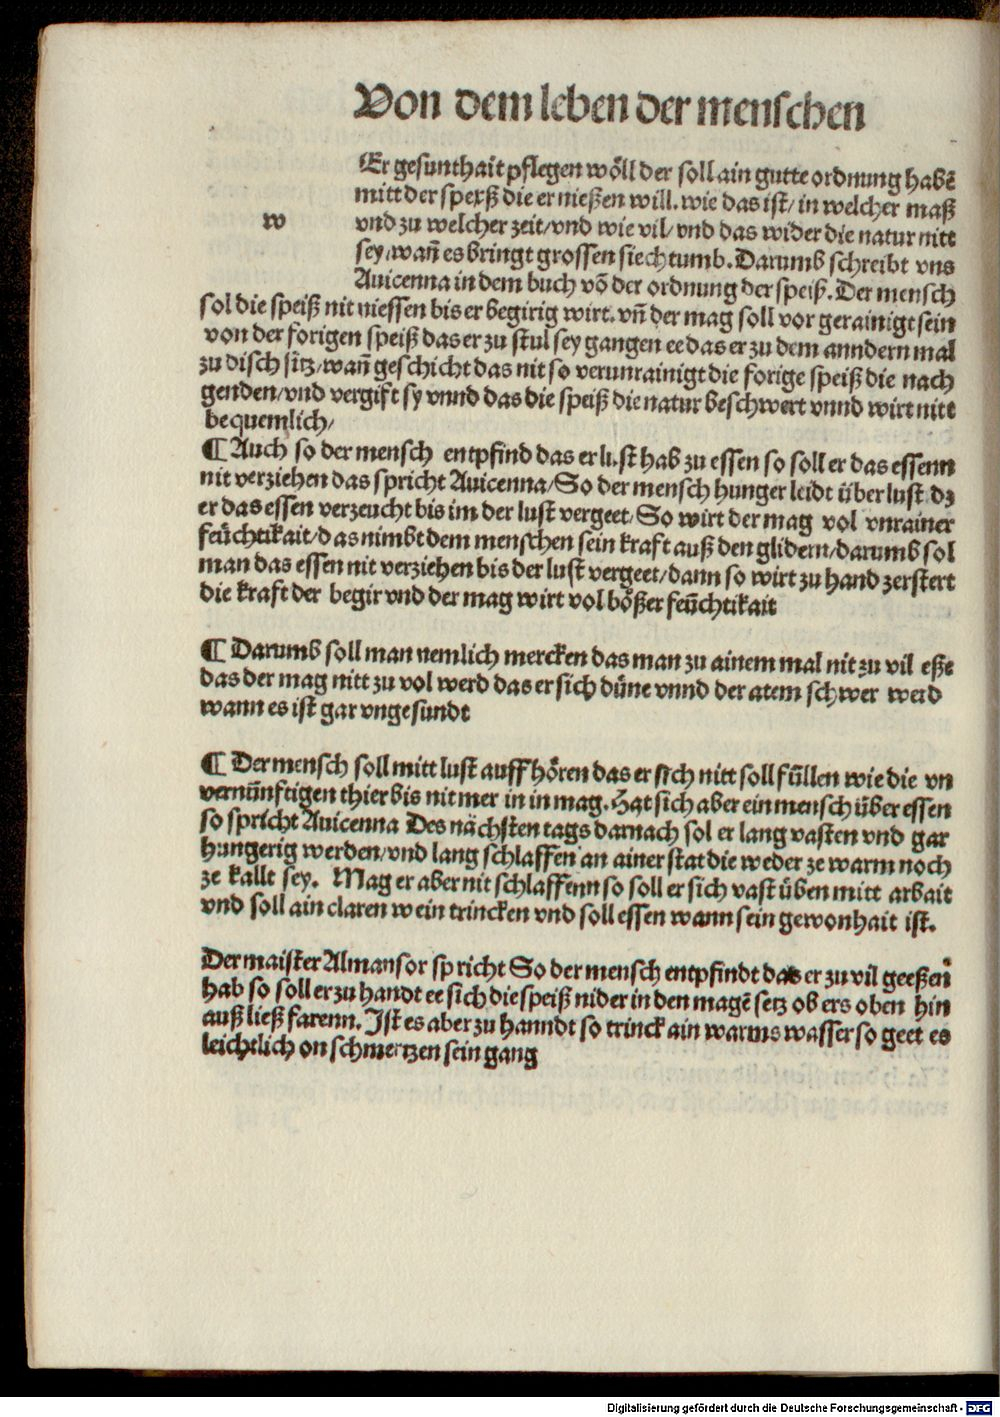 Von dem leben der menschen
Er gesunthait pflegen wöll der soll ain gutte ordnung habē
mitt der speyß die er nießen will. wie das ist/ in welcher maß
w
vnd zu welcher zeit/vnd wie vil/ vnd das wider die natur nitt
sey/wañ es bringt grossen siechtumb. Darumb schreibt vns
Auicenna in dem buch võ der ordnung der speiß. Der mensch
sol die speiß nit niessen bis er begirig wirt. vñ der mag soll vor gerainigt sein
von der forigen speiß das er zu stul sey gangen ee das er zu dem anndern mal
zu disch sitz/wañ geschicht das nit so verunrainigt die forige speiß die nach
genden/vnd vergift sy vnnd das die speiß die natur beschwert vnnd wirt nitt
bequemlich/
¶ Auch so der mensch entpfind das er lust hab zu essen so soll er das essenn
nit verziehen das spricht Auicenna/So der mensch hunger leidt über lust. dz
er das essen verzeucht bis im der lust vergeet/So wirt der mag vol vnrainer
feüchtikait/das nimbt dem menschen sein kraft auß den glidern/darumb sol
man das essen nit verziehen bis der lust vergeet/dann so wirt zu hand zerstert
die kraft der begir vnd der mag wirt vol bößer feüchtikait
¶ Darumb soll man nemlich mercken das man zu ainem mal nit zu vil eße
das der mag nitt zu vol werd das er sich düne vnnd der atem schwer werd
wann es ist gar vngesundt
¶ Der mensch soll mitt lust auff hören das er sich nitt soll füllen wie die vn
vernünftigen thier bis nit mer in in mag. Hat sich aber ein mensch über essen
so spricht Auicenna Des nächsten tags darnach sol er lang vasten vnd gar
hungerig werden/vnd lang schlaffen an ainer stat die weder ze warm noch
ze kallt sey. Mag er aber nit schlaffenn so soll er sich vast üben mitt arbait
vnd soll ain claren wein trincken vnd soll essen wann sein gewonhait ist.
Der maister Almansor spricht So der mensch entpfindt das er zu vil geeßen
hab so soll er zu handt ee sich die speiß nider in den magē setz ob ers oben hin
auß ließ farenn. Ist es aber zu hanndt so trinck ain warms wasser so geet es
leichtlich on schmertzen sein gang
Digitalisierung gefördert durch die Deutsche Forschungsgemeinschaft - DFG